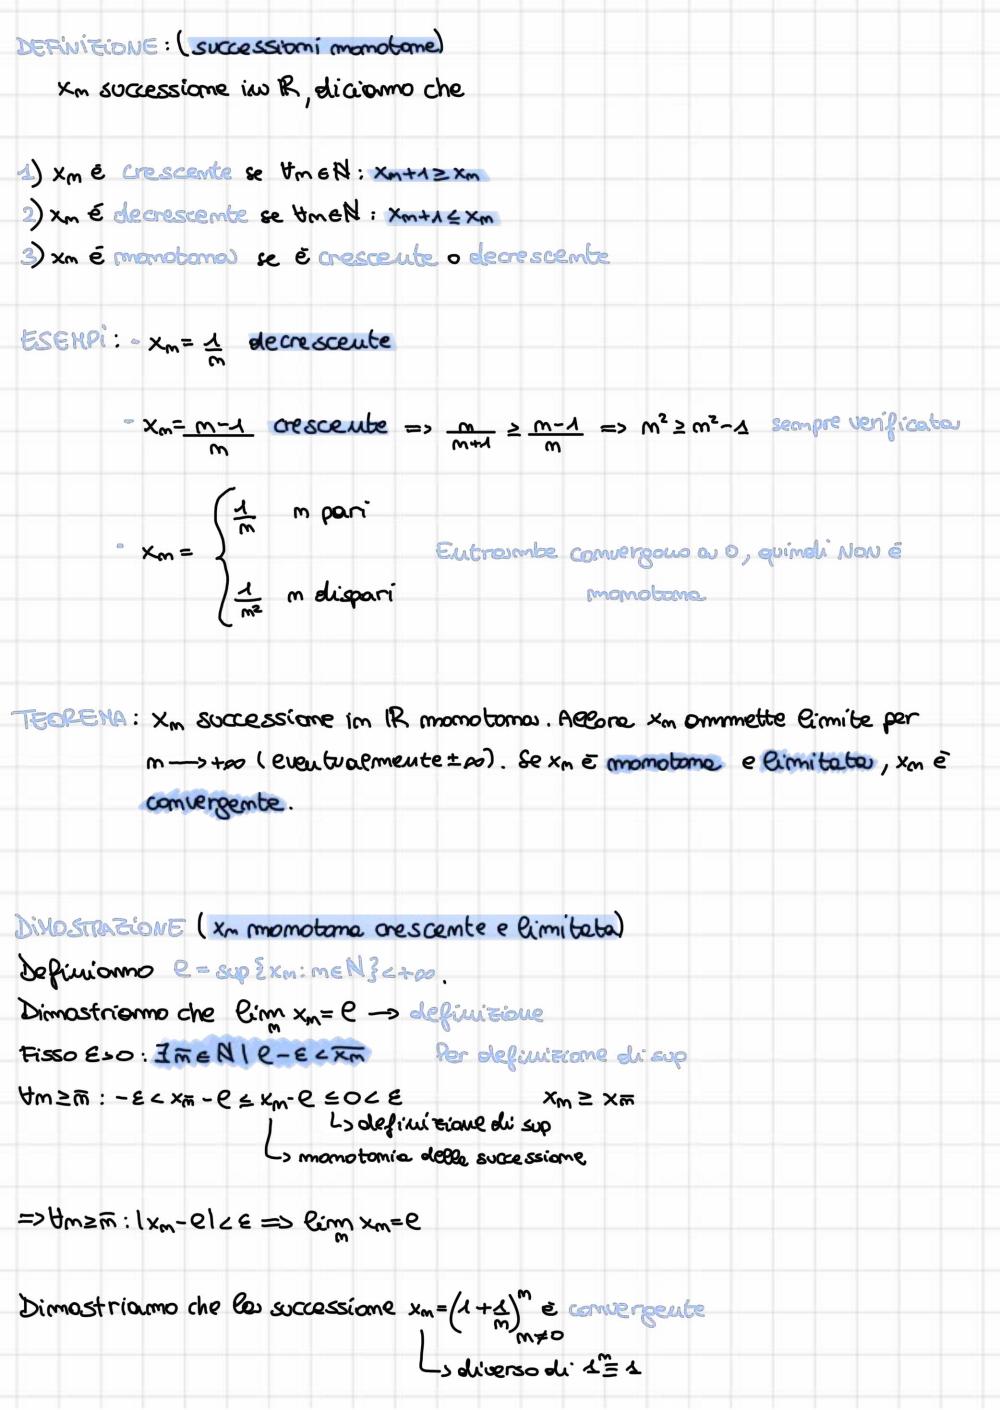 DEFINIZIONE: (successioni monotone)
xₙ successione in ℝ, diciamo che
1) xₙ è crescente se ∀n∈ℕ: xₙ₊₁ ≥ xₙ
2) xₙ è decrescente se ∀n∈ℕ: xₙ₊₁ ≤ xₙ
3) xₙ è monotona se è crescente o decrescente
ESEMPI: - xₙ = 1/n decrescente
- xₙ = (n-1)/n crescente => n/(n+1) ≥ (n-1)/n => n² ≥ n²-1 sempre verificata
- xₙ = { 1/n n pari
Entrambe convergono a 0, quindi NON è
1/n² n dispari
monotona
TEOREMA: xₙ successione in ℝ monotona. Allora xₙ ammette limite per
n → +∞ (eventualmente ±∞). Se xₙ è monotona e limitata, xₙ è
convergente.
DIMOSTRAZIONE (xₙ monotona crescente e limitata)
Definiamo ℓ = sup{xₙ: n∈ℕ} < +∞.
Dimostriamo che lim_n xₙ = ℓ → definizione
Fisso ε>0: ∃n̄∈ℕ | ℓ-ε < x_n̄ Per definizione di sup
∀n≥n̄: -ε < x_n̄ - ℓ ≤ xₙ - ℓ ≤ 0 < ε xₙ ≥ x_n̄
↳ definizione di sup
↳ monotonia della successione
=> ∀n≥n̄: |xₙ-ℓ| < ε => lim_n xₙ = ℓ
Dimostriamo che la successione xₙ = (1 + 1/n)ⁿ n≠0 è convergente
↳ diverso di 1ⁿ ≡ 1